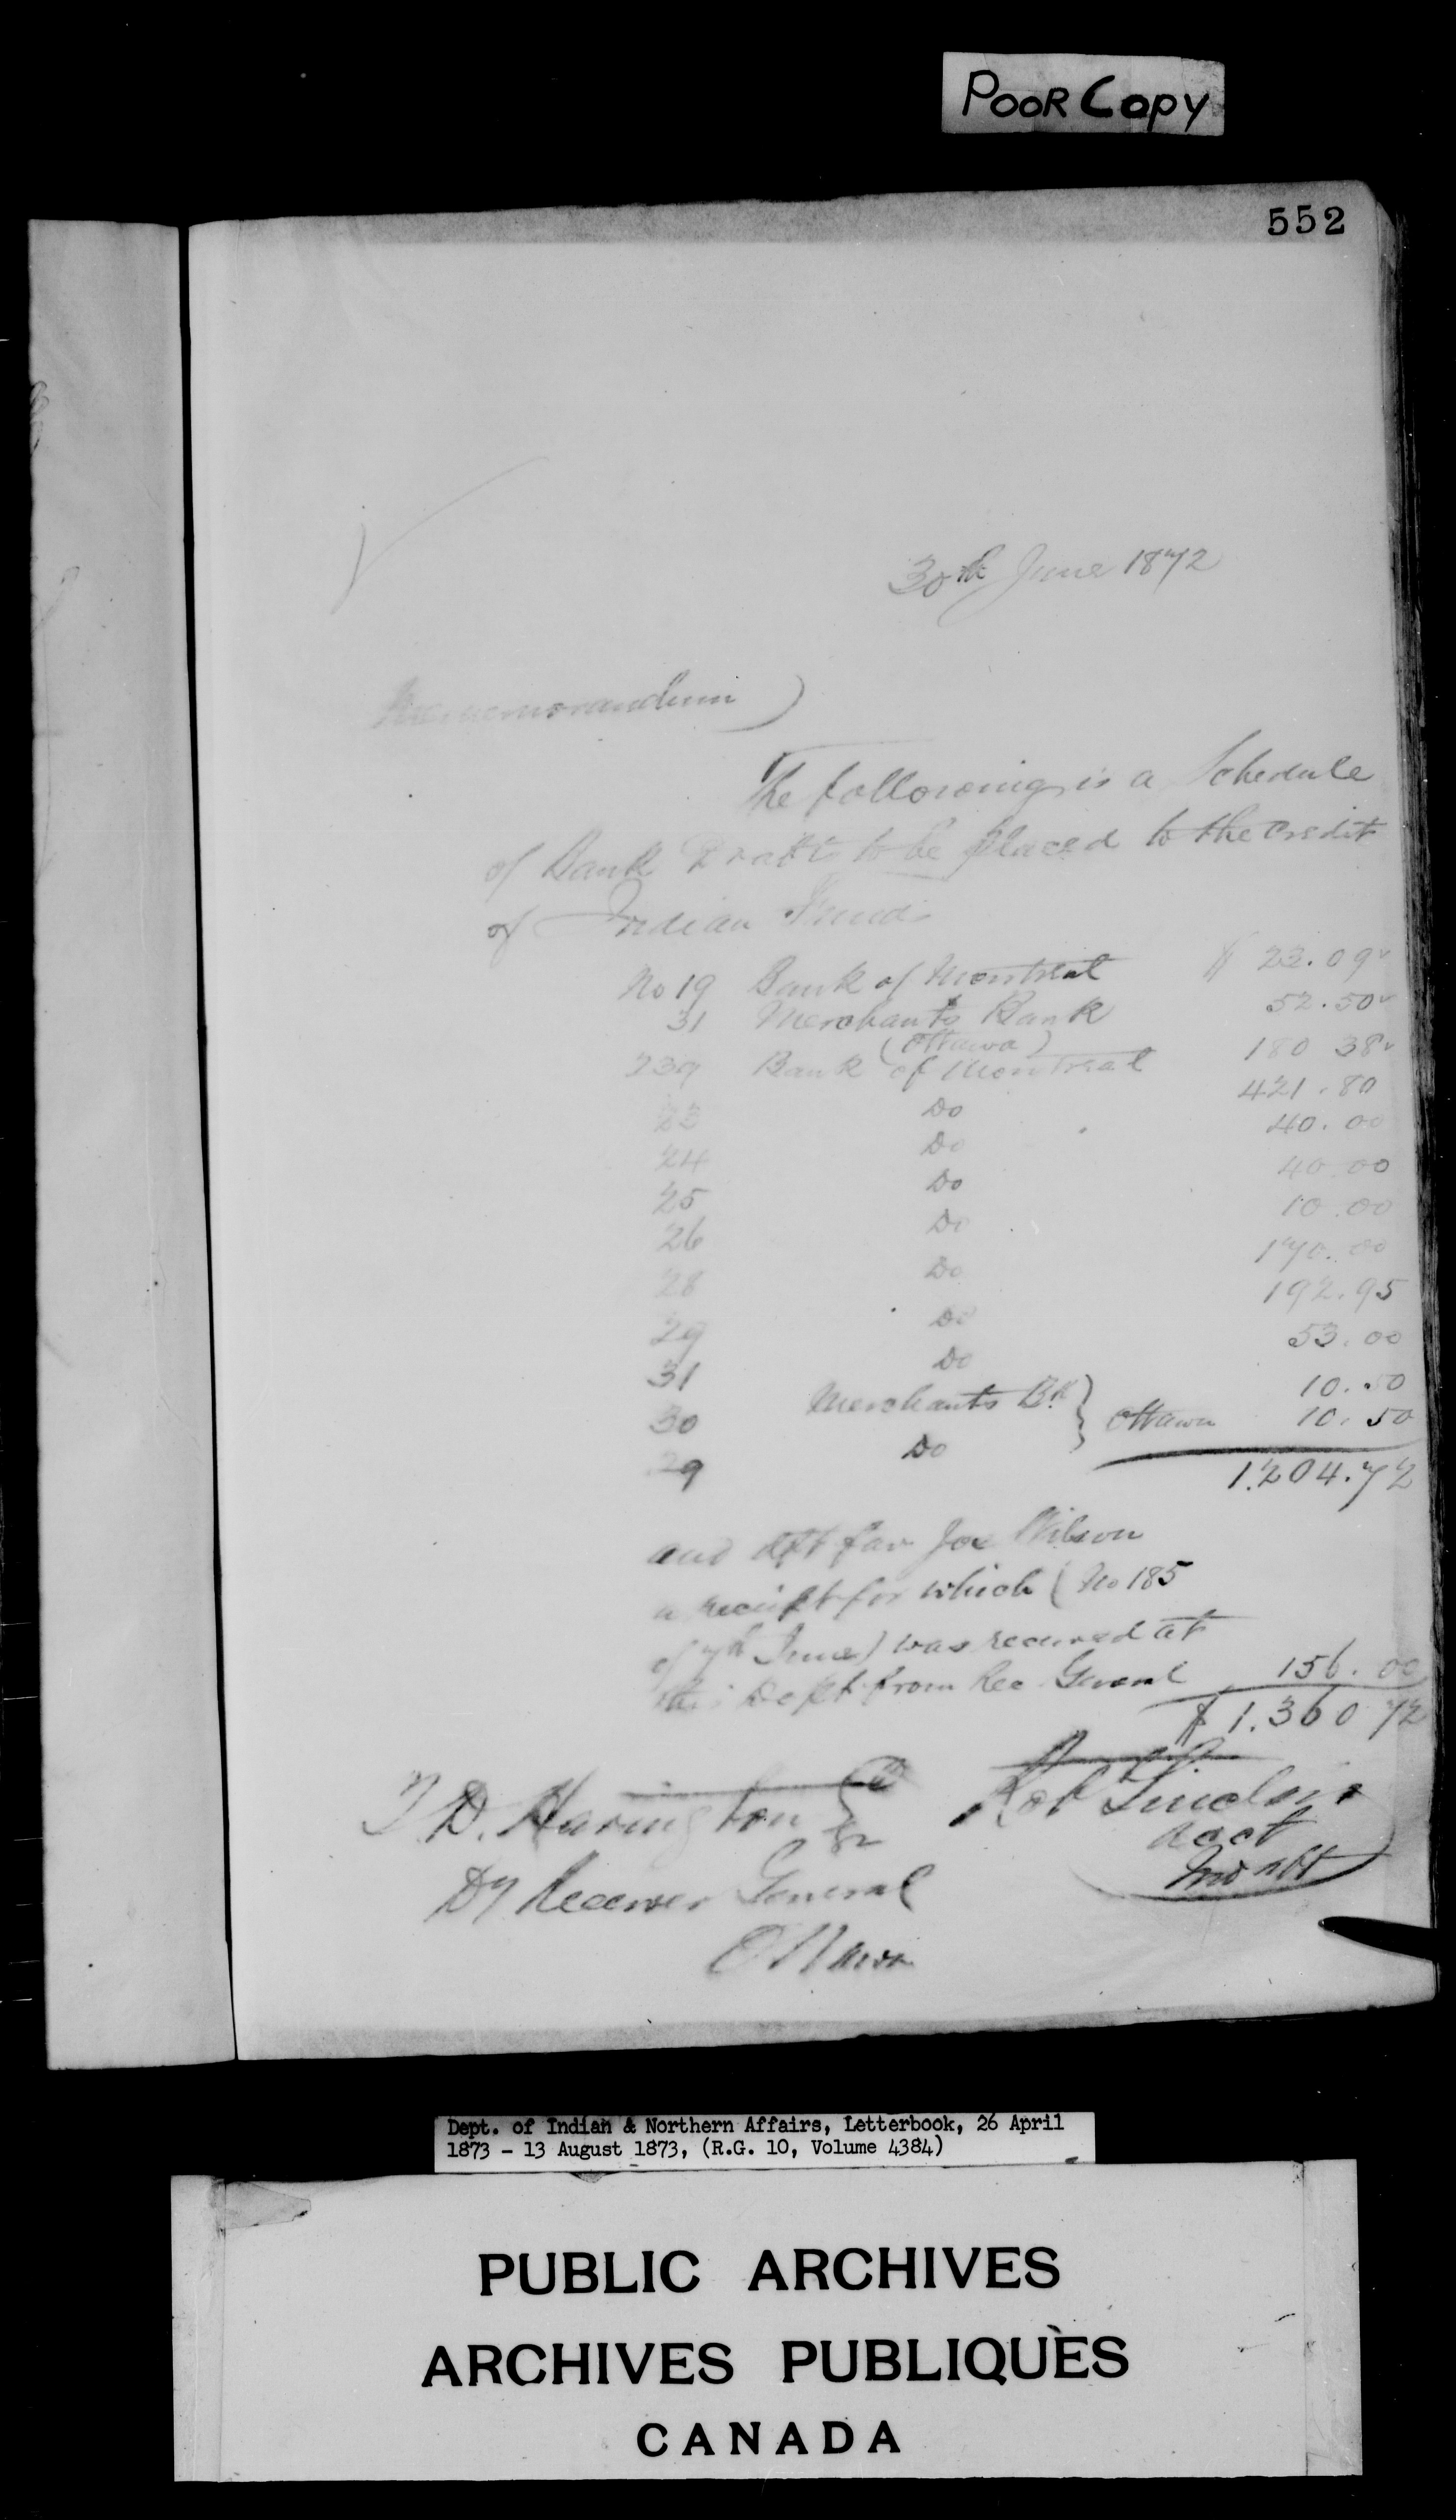 POOR Copy
552
30th June 1872
Memorandum )
The following is a Schedule
of Bank Drafts to be placed to the credit
of Indian Funds
No 19 Bank of Montreal $ 23.09
31 Merchants Bank 52.50
(Ottawa)
239 Bank of Montreal 180 38
23 Do 421.80
24 Do 40.00
25 Do 40.00
26 Do 10.00
28 Do 170.00
29 Do 192.95
31 Do 53.00
30 Merchants Bk } Ottawa 10.50
29 Do 10.50
1.204.72
and dft fav Joe Wilson
a receipt for which (No 185
of 7th June) was received at
this Dept from Rec General 156.00
$ 1.360 72
T D. Harington Esq
Dy Receiver General
Ottawa
Rob Sinclair
Acct
Dept. of Indian & Northern Affairs, Letterbook, 26 April
1873 - 13 August 1873, (R.G. 10, Volume 4384)
PUBLIC ARCHIVES
ARCHIVES PUBLIQUES
CANADA